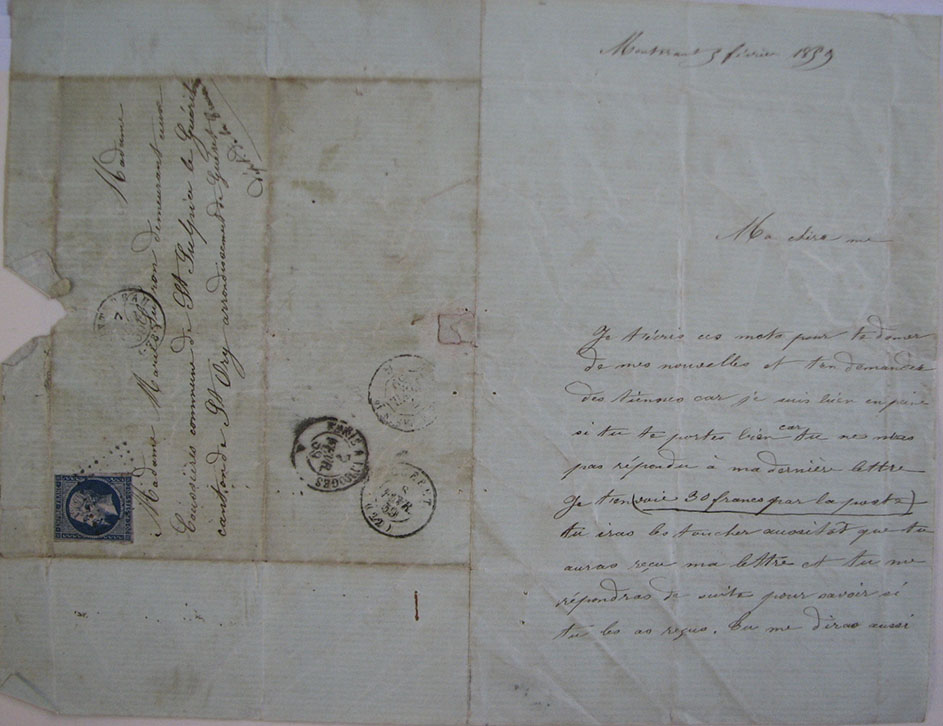 3 février 1859
Ma chère me
Je t'écris ces mots pour te donner
de mes nouvelles et t'en demander
des tiennes car je suis bien en peine
si tu te portes bien car tu ne m'as
pas répondu à ma dernière lettre
Je t'en (voie 30 francs par la poste)
tu iras les toucher aussitôt que tu
auras reçu ma lettre et tu me
répondras de suite pour savoir si
tu les as reçus. Tu me diras aussi
Madame
Madame Marie demeurant aux
commune de St Sulpice le Guéritois
canton de St Vry arrondissement de Guéret
PARIS A LIMOGES
7
FEVR.
59
A
8
FEVR.
59
(22)